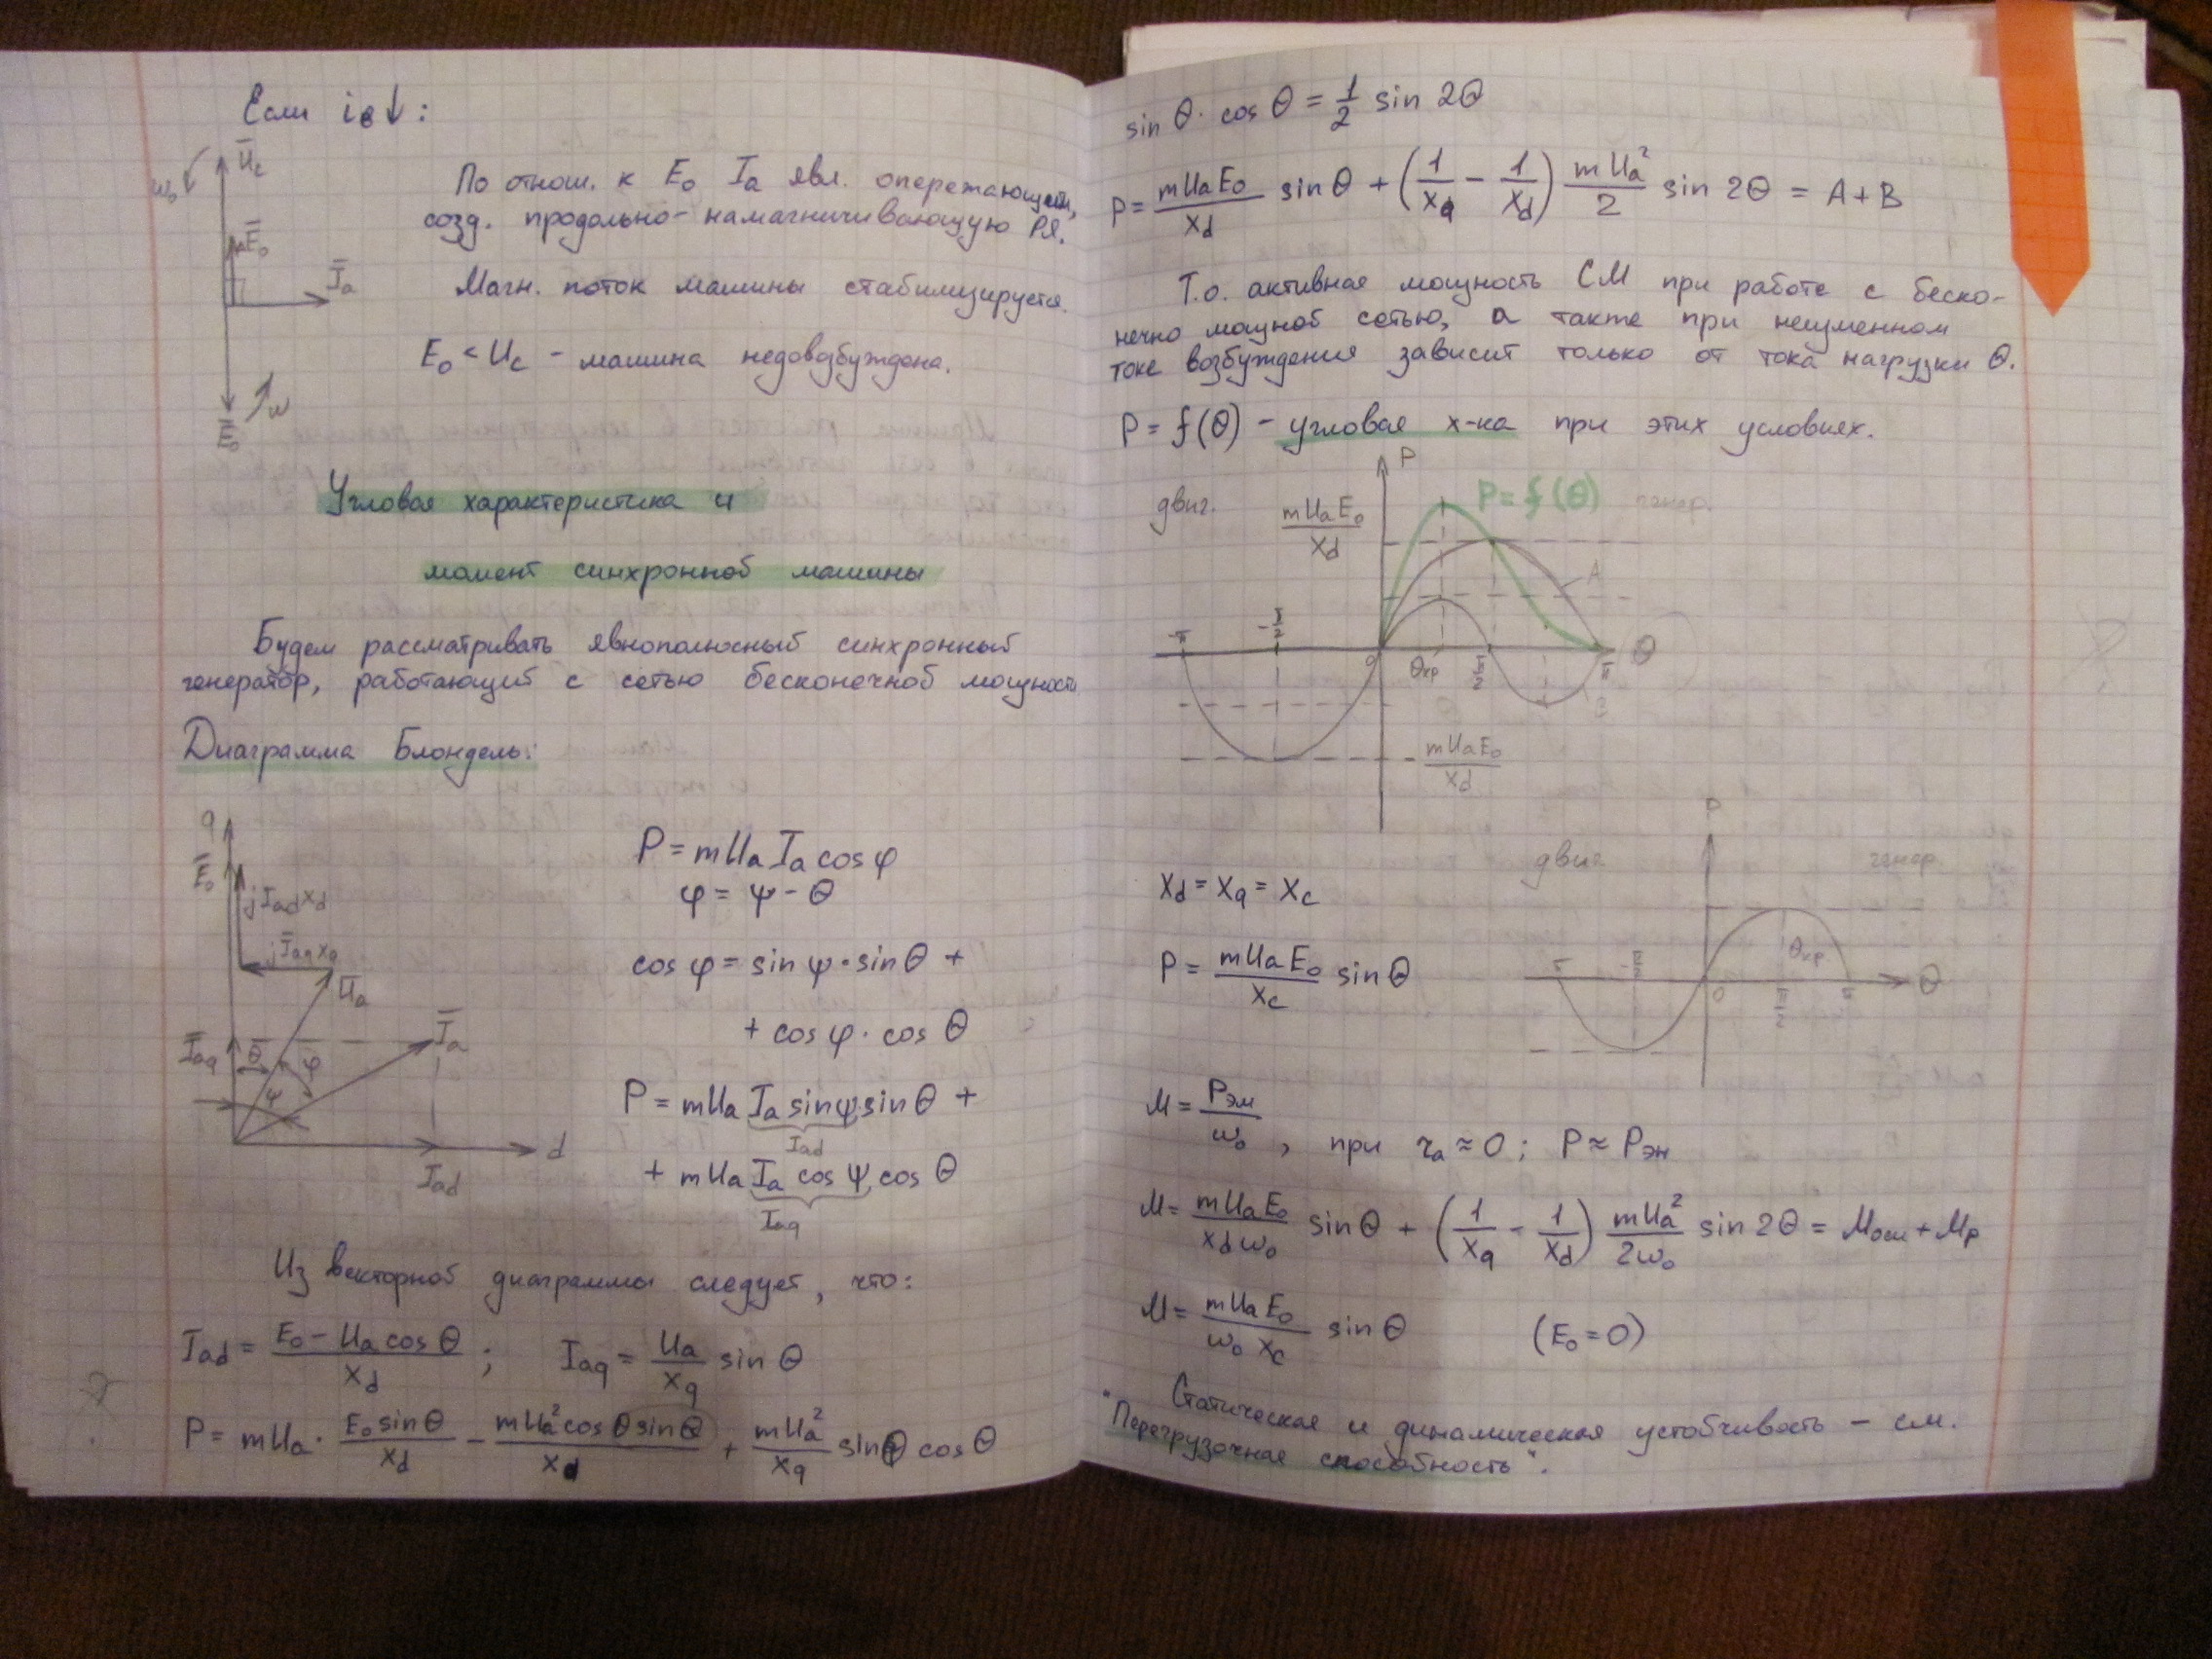 Если iв↓:
ω₀
U̅c
E̅₀
I̅a
E̅₀
ω
По отнош. к E₀ Iа явл. опережающим,
созд. продольно-намагничивающую РЯ.
Магн. поток машины стабилизируется.
E₀ < Uc - машина недовозбуждена.
Угловая характеристика и
момент синхронной машины
Будем рассматривать явнополюсный синхронный
генератор, работающий с сетью бесконечной мощности
Диаграмма Блондель:
q
E̅₀
jI̅ad xd
jI̅aq xq
U̅a
I̅aq
I̅a
θ
φ
ψ
d
I̅ad
P = mUa Ia cos φ
φ = ψ - θ
cos φ = sin ψ · sin θ +
+ cos φ · cos θ
P = mUa Ia sin ψ sin θ +
Iad
+ mUa Ia cos ψ cos θ
Iaq
Из векторной диаграммы следует, что:
Iad = (E₀ - Ua cos θ)/xd ; Iaq = Ua/xq sin θ
P = mUa · E₀ sin θ/xd - mUa² cos θ sin θ/xd + mUa²/xq sin θ cos θ
sin θ · cos θ = 1/2 sin 2θ
P = mUaE₀/xd sin θ + (1/xq - 1/xd) mUa²/2 sin 2θ = A + B
Т.о. активная мощность СМ при работе с беско-
нечно мощной сетью, а также при неизменном
токе возбуждения зависит только от тока нагрузки θ.
P = f(θ) - угловая х-ка при этих условиях.
P
двиг.
mUaE₀/xd
P = f(θ)
генер.
A
-π
-π/2
0
θкр
π/2
π
θ
B
- mUaE₀/xd
P
двиг
генер.
xd = xq = xc
P = mUaE₀/xc sin θ
-π
-π/2
0
θкр
π/2
π
θ
M = Pэм/ω₀ , при ra ≈ 0; P ≈ Pэм
M = mUaE₀/xdω₀ sin θ + (1/xq - 1/xd) mUa²/2ω₀ sin 2θ = Mосн + Mр
M = mUaE₀/ω₀ xc sin θ (E₀ = 0)
Статическая и динамическая устойчивость - см.
"Перегрузочная способность".